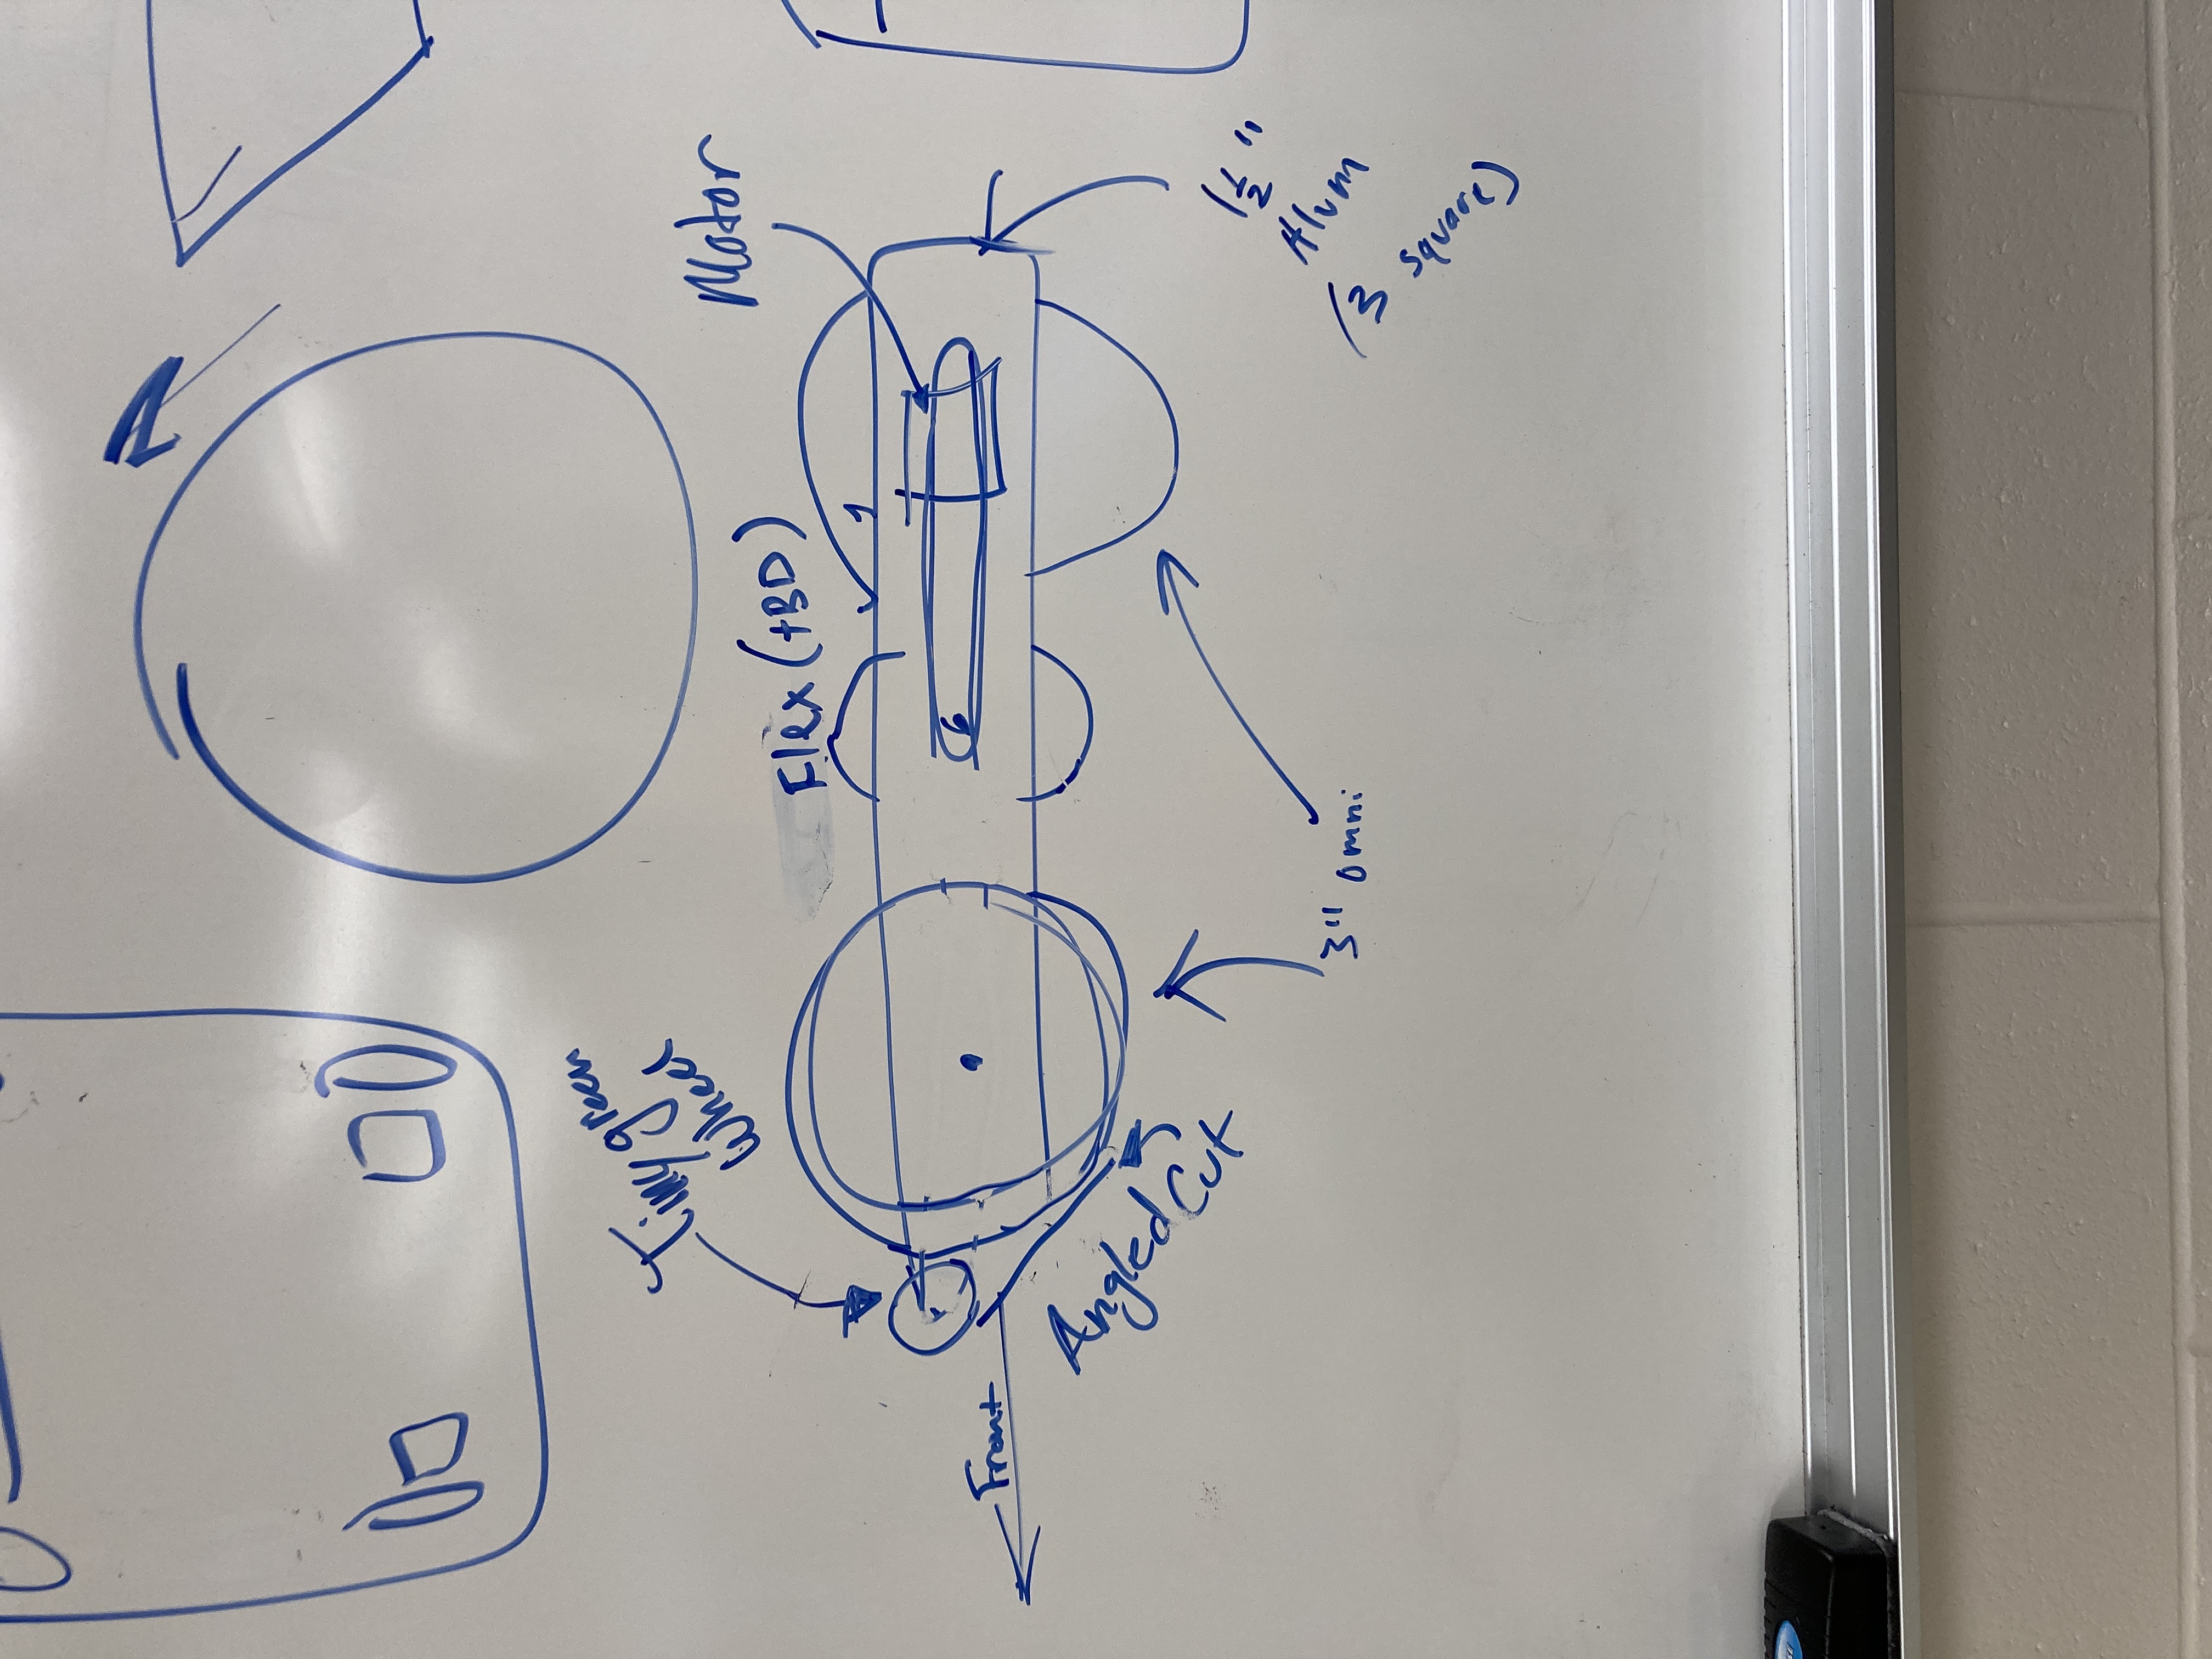 Tiny green
Wheel
Motor
Flex (TBD)
Front
Angled Cut
3" Omni
1 1/2 "
Alum
(3 square)